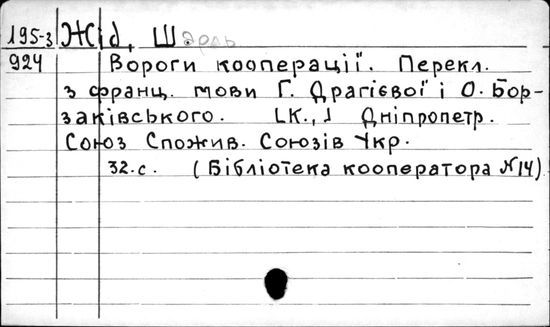 195-3 Жід, Шарль
924 Вороги кооперації. Перекл.
з франц. мови Г. Драгієвої і О. Бор-
заківського. [К.,] Дніпропетр.
Союз Спожив. Союзів Укр.
32.с. (Бібліотека кооператора №14)